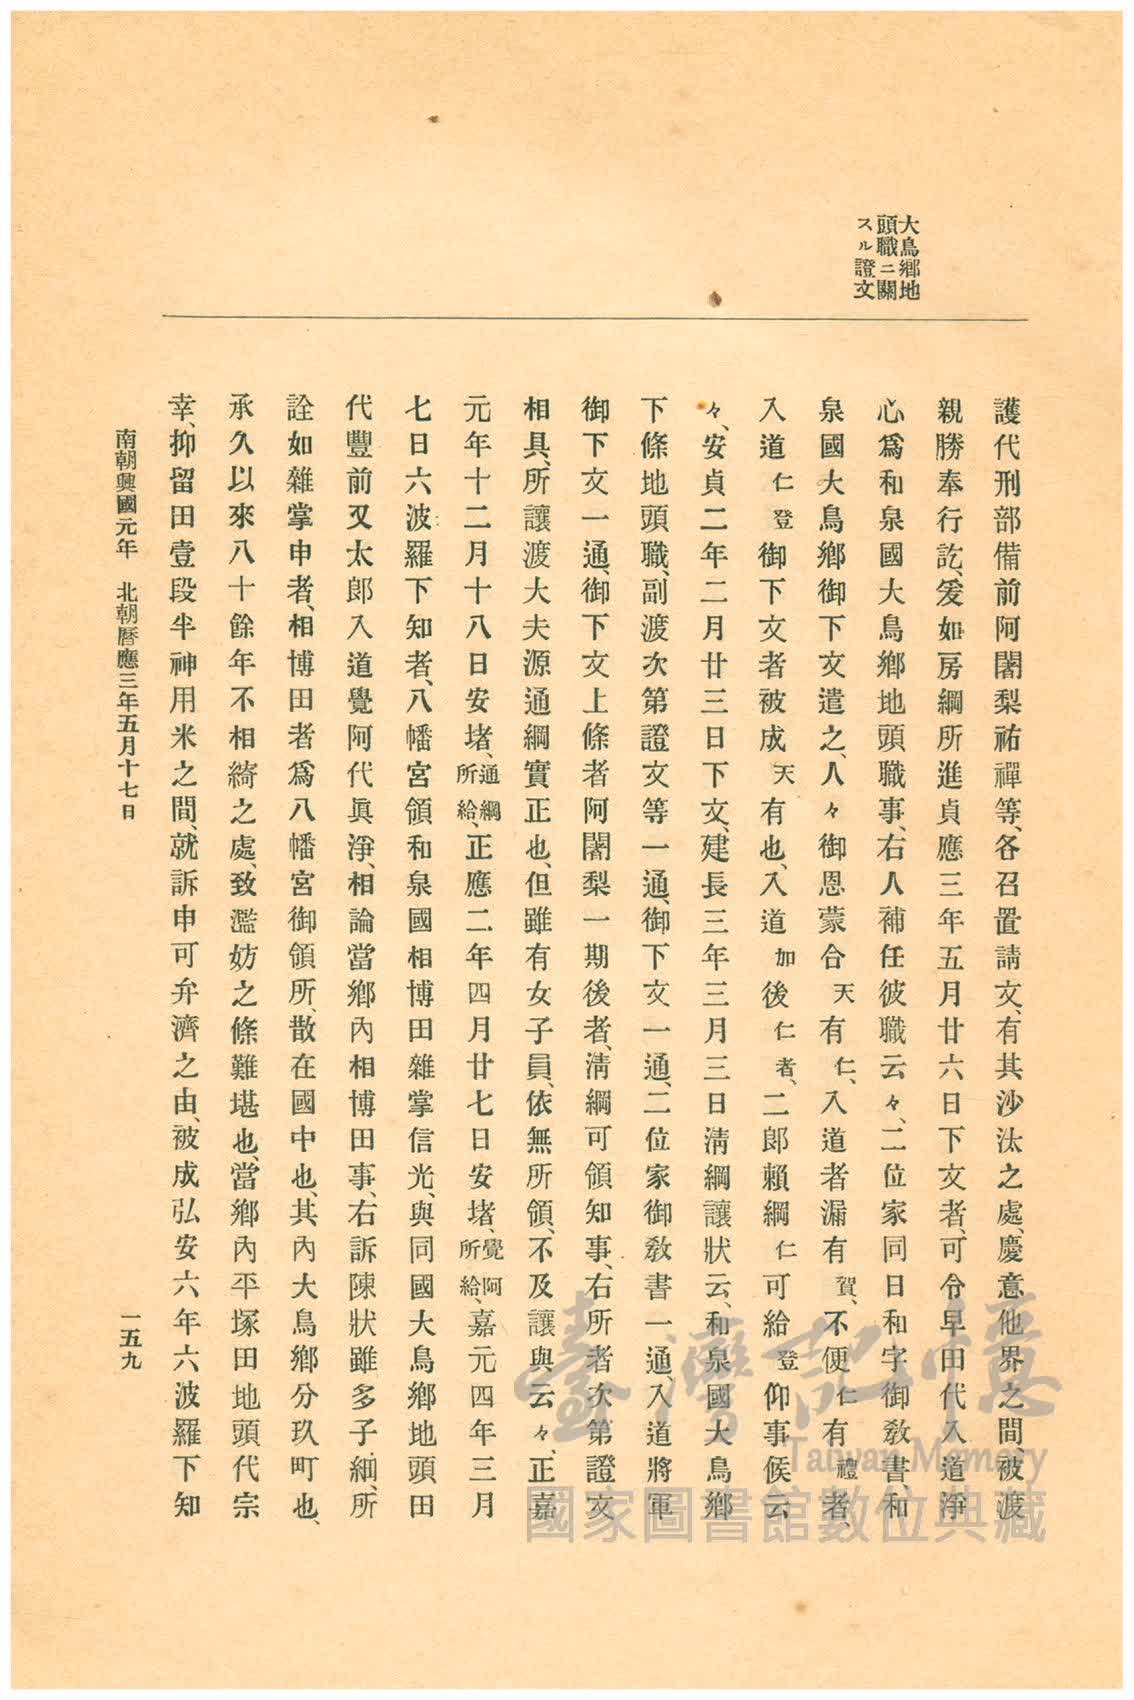 大鳥鄉地
頭職ニ關
スル證文
護代刑部備前阿闍梨祐禪等、各召置請文、有其沙汰之處、慶意他界之間、被渡
親勝奉行訖、爰如房綱所進貞應三年五月廿六日下文者、可令早田代入道淨
心爲和泉國大鳥鄉地頭職事、右人補任彼職云々、二位家同日和字御敎書、和
泉國大鳥鄉御下文遣之、人々御恩蒙合天有仁、入道者漏有賀、不便仁有禮者、
入道仁登御下文者被成天有也、入道加後仁者、二郎賴綱仁可給登仰事候云
々、安貞二年二月廿三日下文、建長三年三月三日淸綱讓狀云、和泉國大鳥鄉
下條地頭職、副渡次第證文等一通、御下文一通、二位家御敎書一通、入道將軍
御下文一通、御下文上條者阿闍梨一期後者、淸綱可領知事、右所者次第證文
相具、所讓渡大夫源通綱實正也、但雖有女子員、依無所領、不及讓與云々、正嘉
元年十二月十八日安堵、通綱所給、正應二年四月廿七日安堵、覺阿所給、嘉元四年三月
七日六波羅下知者、八幡宮領和泉國相博田雜掌信光、與同國大鳥鄉地頭田
代豐前又太郎入道覺阿代眞淨、相論當鄉內相博田事、右訴陳狀雖多子細、所
詮如雜掌申者、相博田者爲八幡宮御領所、散在國中也、其內大鳥鄉分玖町也、
承久以來八十餘年不相綺之處、致濫妨之條難堪也、當鄉內平塚田地頭代宗
幸、抑留田壹段半神用米之間、就訴申可弁濟之由、被成弘安六年六波羅下知
南朝興國元年　北朝曆應三年五月十七日
一五九
臺灣記憶
Taiwan Memory
國家圖書館數位典藏